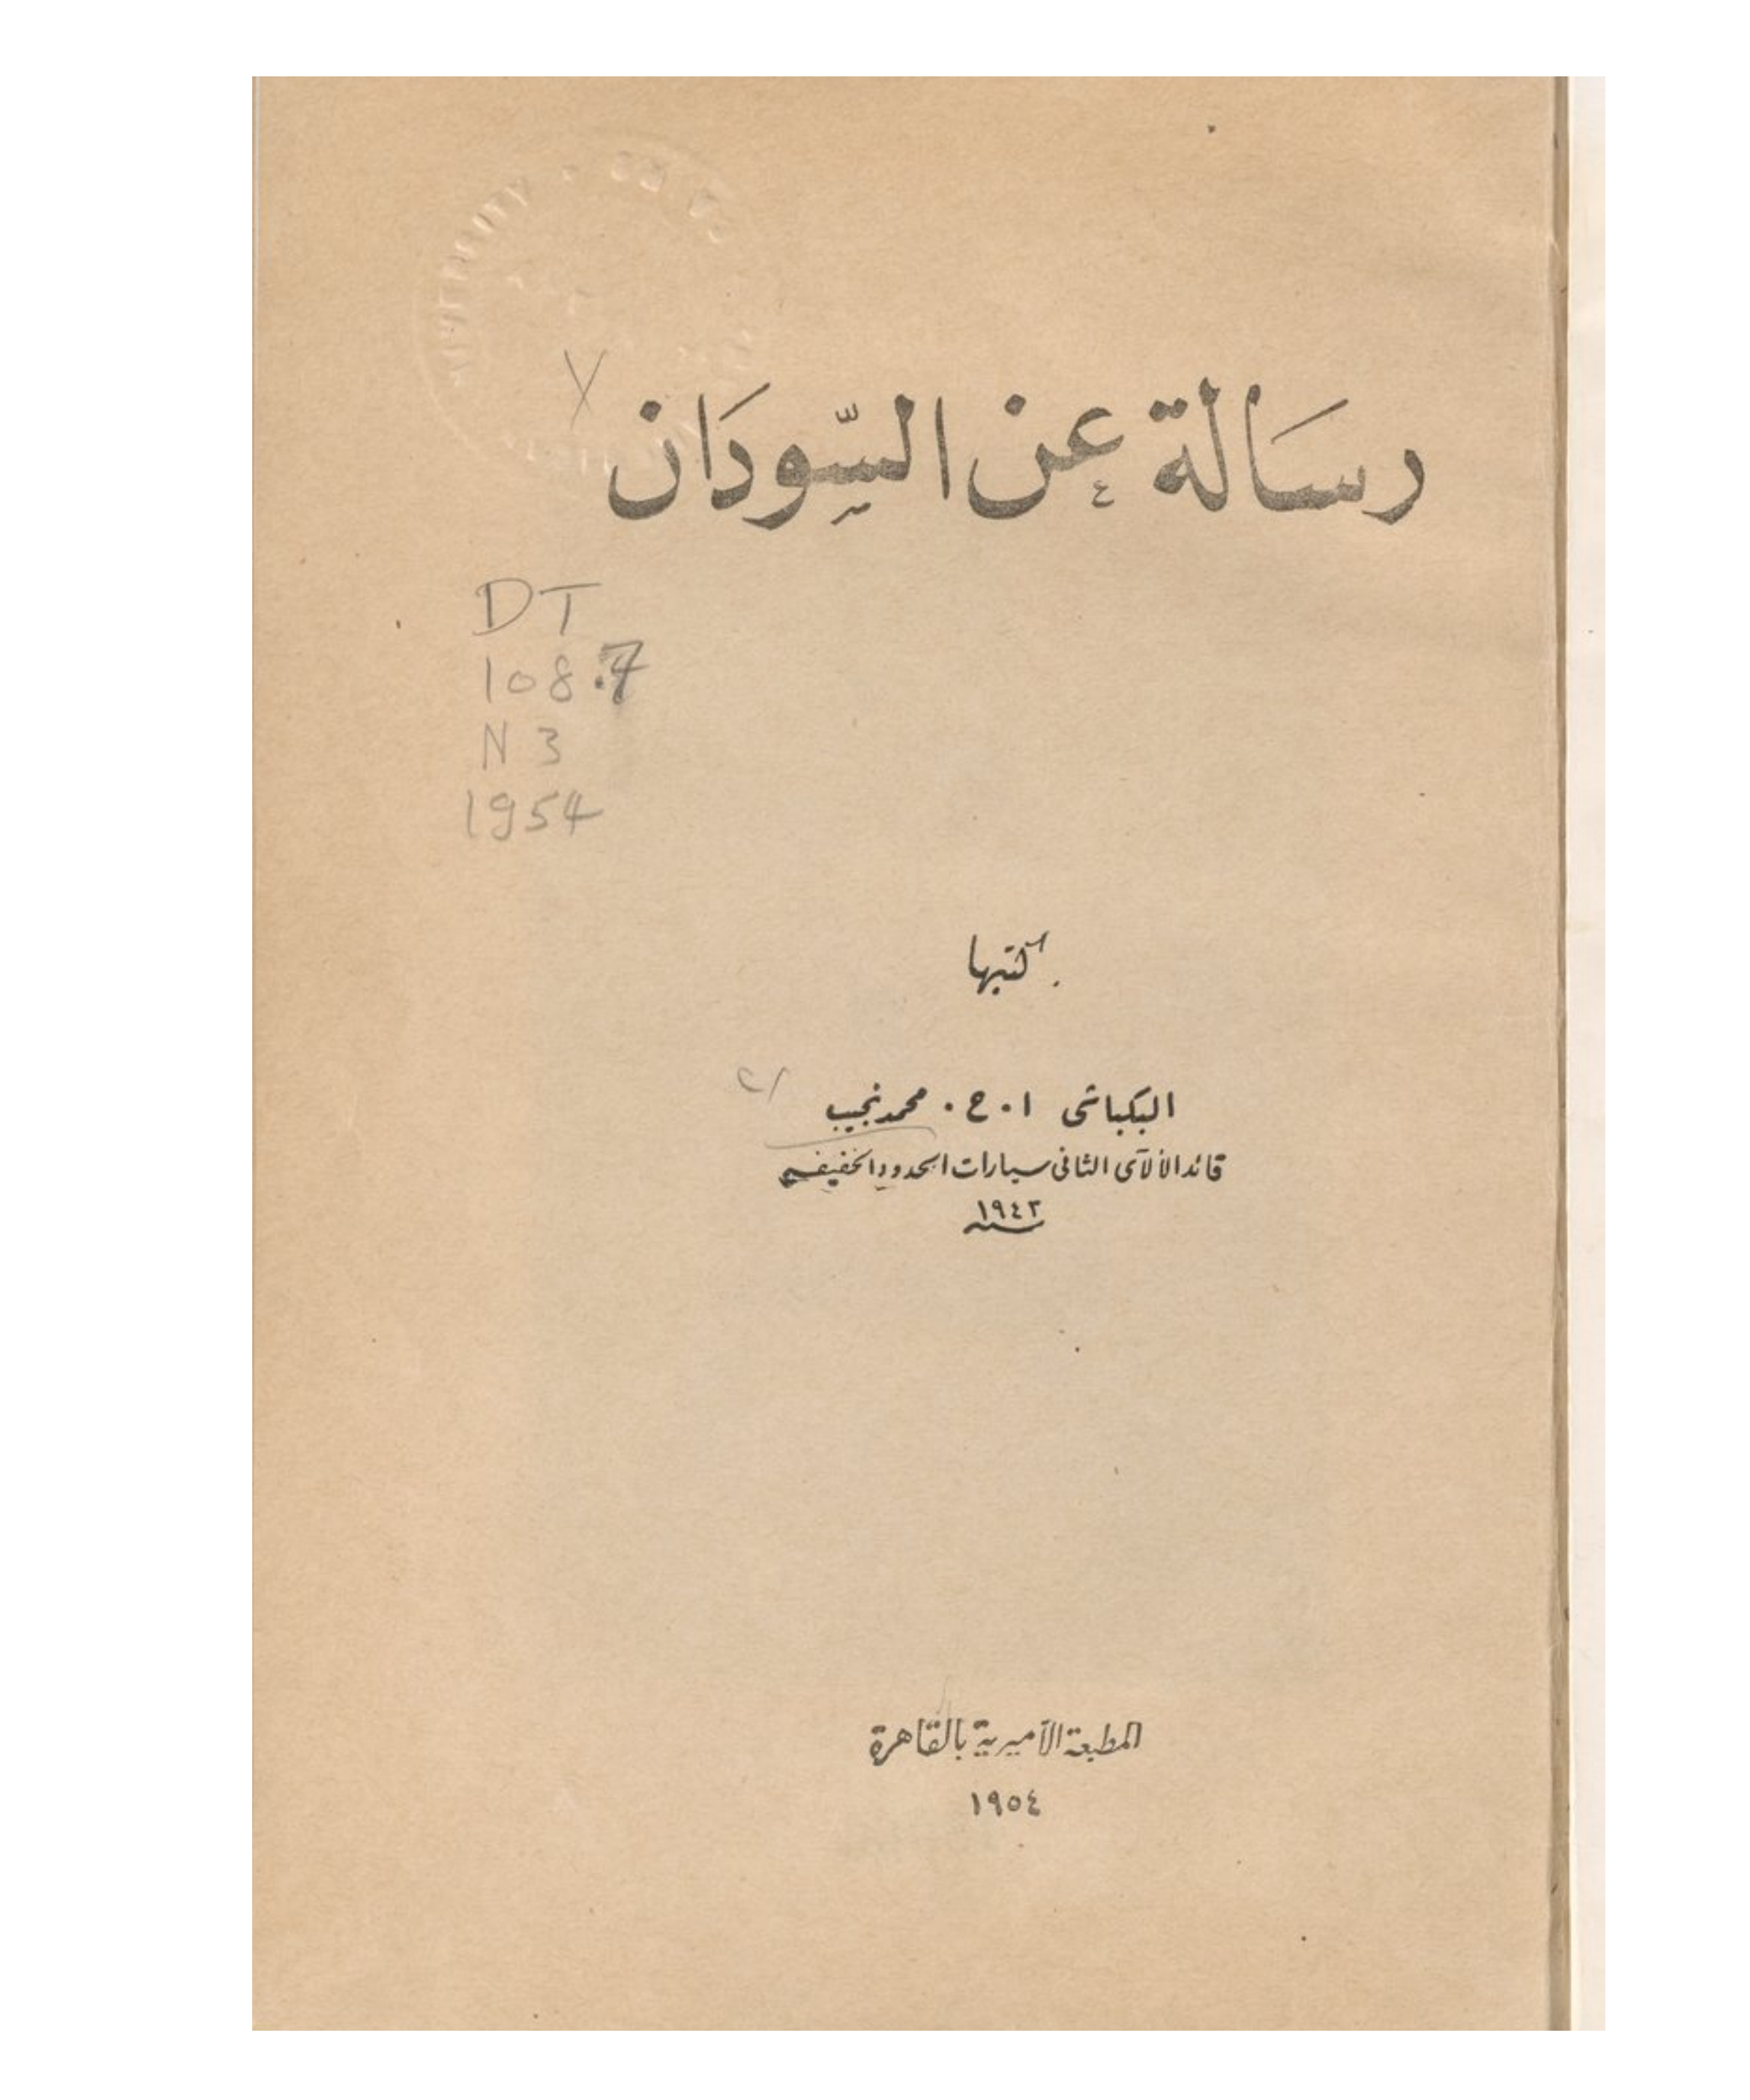 رسالة عن السودان
DT
108.7
N 3
1954
كتبها
البكباشى ا. ح. محمد نجيب
قائد الألاى الثانى سيارات الحدود الخفيفة
سنة ١٩٤٣
المطبعة الأميرية بالقاهرة
١٩٥٤